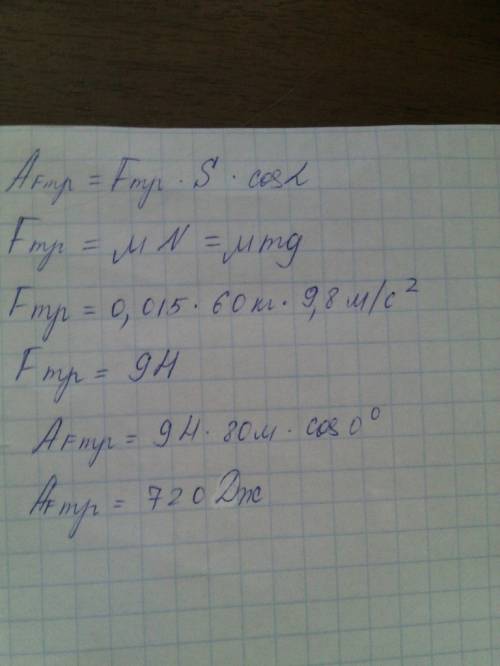 Aтр = Fтр · S · cosα
Fтр = μN = μmg
Fтр = 0,015 · 60кг · 9,8м/с²
Fтр = 9Н
AFтр = 9Н · 80м · cos0°
AFтр = 720Дж